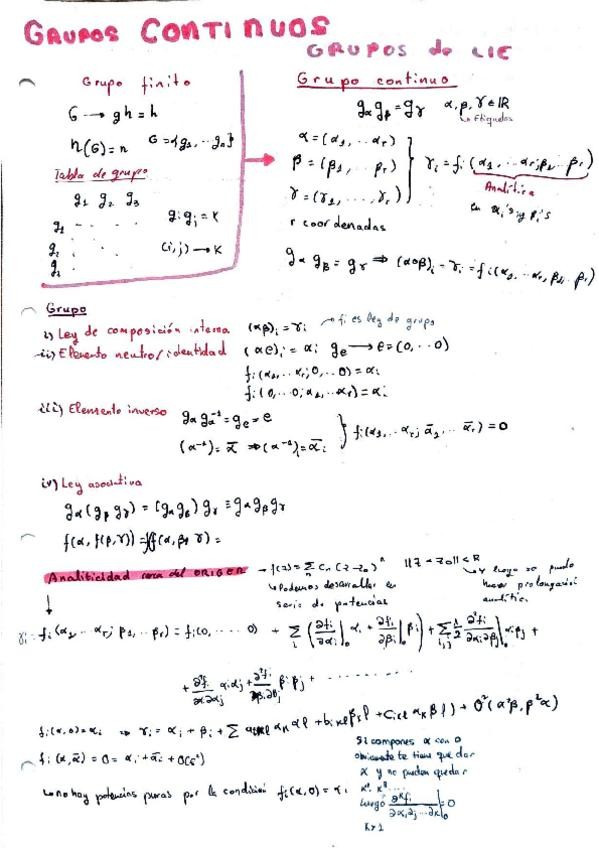 GRUPOS CONTINUOS
GRUPOS de LIE
Grupo finito
G → gh = h
n(G) = n G = {g₁, ... gₙ}
Tabla de grupo
g₁ g₂ g₃
g₁ . . .
g₂ .
g₃ .
gᵢgⱼ = K
(i,j) → K
Grupo continuo
g_α g_β = g_γ α, β, γ ∈ ℝ
↳ Etiquetas
α = (α₁, ... αᵣ)
β = (β₁, ... βᵣ)
γ = (γ₁, ..., γᵣ)
γᵢ = fᵢ(α₁, ... αᵣ; β₁ ... βᵣ)
Analítica
en αᵢ's y βᵢ's
r coordenadas
g_α g_β = g_γ ⇒ (α∘β)ᵢ = γᵢ = fᵢ(α₁, ... αᵣ, β₁, ... βᵣ)
Grupo
i) Ley de composición interna (αβ)ᵢ = γᵢ → fᵢ es ley de grupo
ii) Elemento neutro/identidad (αe)ᵢ = αᵢ g_e → e = (0, ... 0)
fᵢ(α₁, ... αᵣ; 0, ... 0) = αᵢ
fᵢ(0, ... 0; α₁, ... αᵣ) = αᵢ
iii) Elemento inverso g_α g_α⁻¹ = g_e = e
(α⁻¹) = ᾱ ⇒ (α⁻¹)ᵢ = ᾱᵢ } fᵢ(α₁, ... αᵣ; ᾱ₁, ... ᾱᵣ) = 0
iv) Ley asociativa
g_α(g_β g_γ) = (g_α g_β) g_γ ≡ g_α g_β g_γ
f(α, f(β, γ)) = f(f(α, β), γ) =
Analiticidad cerca del ORIGEN → f(z) = Σₙ Cₙ(z - z₀)ⁿ ||z - z₀|| < R
↳ Podemos desarrollar en
serie de potencias
↳ y luego se puede
hacer prolongación
analítica.
γᵢ = fᵢ(α₁ ... αᵣ; β₁, ... βᵣ) = fᵢ(0, ... 0) + Σᵢ (∂fᵢ/∂αᵢ|₀ αᵢ + ∂fᵢ/∂βᵢ|₀ βᵢ) + Σᵢ,ⱼ ½ ∂²fᵢ/∂αᵢ∂βⱼ|₀ αᵢβⱼ +
+ ∂²fᵢ/∂α∂αⱼ αᵢαⱼ + ∂²fᵢ/∂βᵢ∂βⱼ βᵢβⱼ + ...
fᵢ(α, 0) = αᵢ ⇒ γᵢ = αᵢ + βᵢ + Σ aᵢₖₗ αₖ αₗ + bᵢₖₗ βₖ βₗ + Cᵢₖₗ αₖ βₗ + O²(α²β, β²α)
fᵢ(α, ᾱ) = 0 = αᵢ + ᾱᵢ + O(ε²)
↳ no hay potencias puras por la condición fᵢ(α, 0) = αᵢ
Si compones α con 0
te tiene que dar
α y no pueden quedar
α², α³ ...
luego ∂ᴷfᵢ/∂αᵢ∂ⱼ...∂αₖ|₀ = 0
K > 1